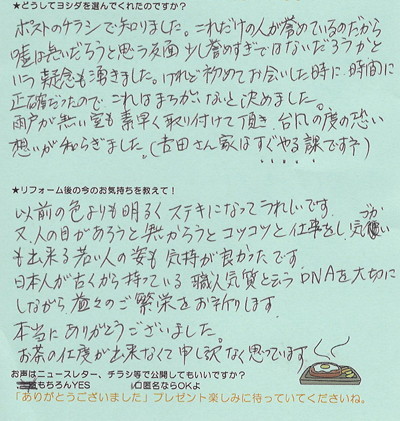 ★どうしてヨシダを選んでくれたのですか?
ポストのチラシで知りました。これだけの人が誉めているのだから
嘘は無いだろうと思う反面 少し誉めすぎではないだろうかと
いう疑念も湧きました。けれど初めてお会いした時に、時間に
正確だったので これはまちがいないと決めました。
雨戸が無い室も素早く取り付けて頂き、台風の度の恐い
想いが和らぎました。(吉田さん家はすぐやる課ですネ)
★リフォーム後の今のお気持ちを教えて!
以前の色よりも明るくステキになってうれしいです。
又、人の目があろうと無かろうとコツコツと仕事をし、気づかい
も出来る若い人の姿も気持が良かったです。
日本人が古くから持っている職人気質と云うDNAを大切に
しながら、益々のご繁栄をお祈りします。
本当にありがとうございました。
お茶の仕度が出来なくて申し訳なく思っています。
お声はニュースレター、チラシ等で公開してもいいですか?
もちろんYES □匿名ならOKよ
「ありがとうございました」プレゼント楽しみに待っていてくださいね。